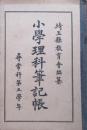 埼玉縣教育會編纂
小學理科筆記帳
尋常科第五學年